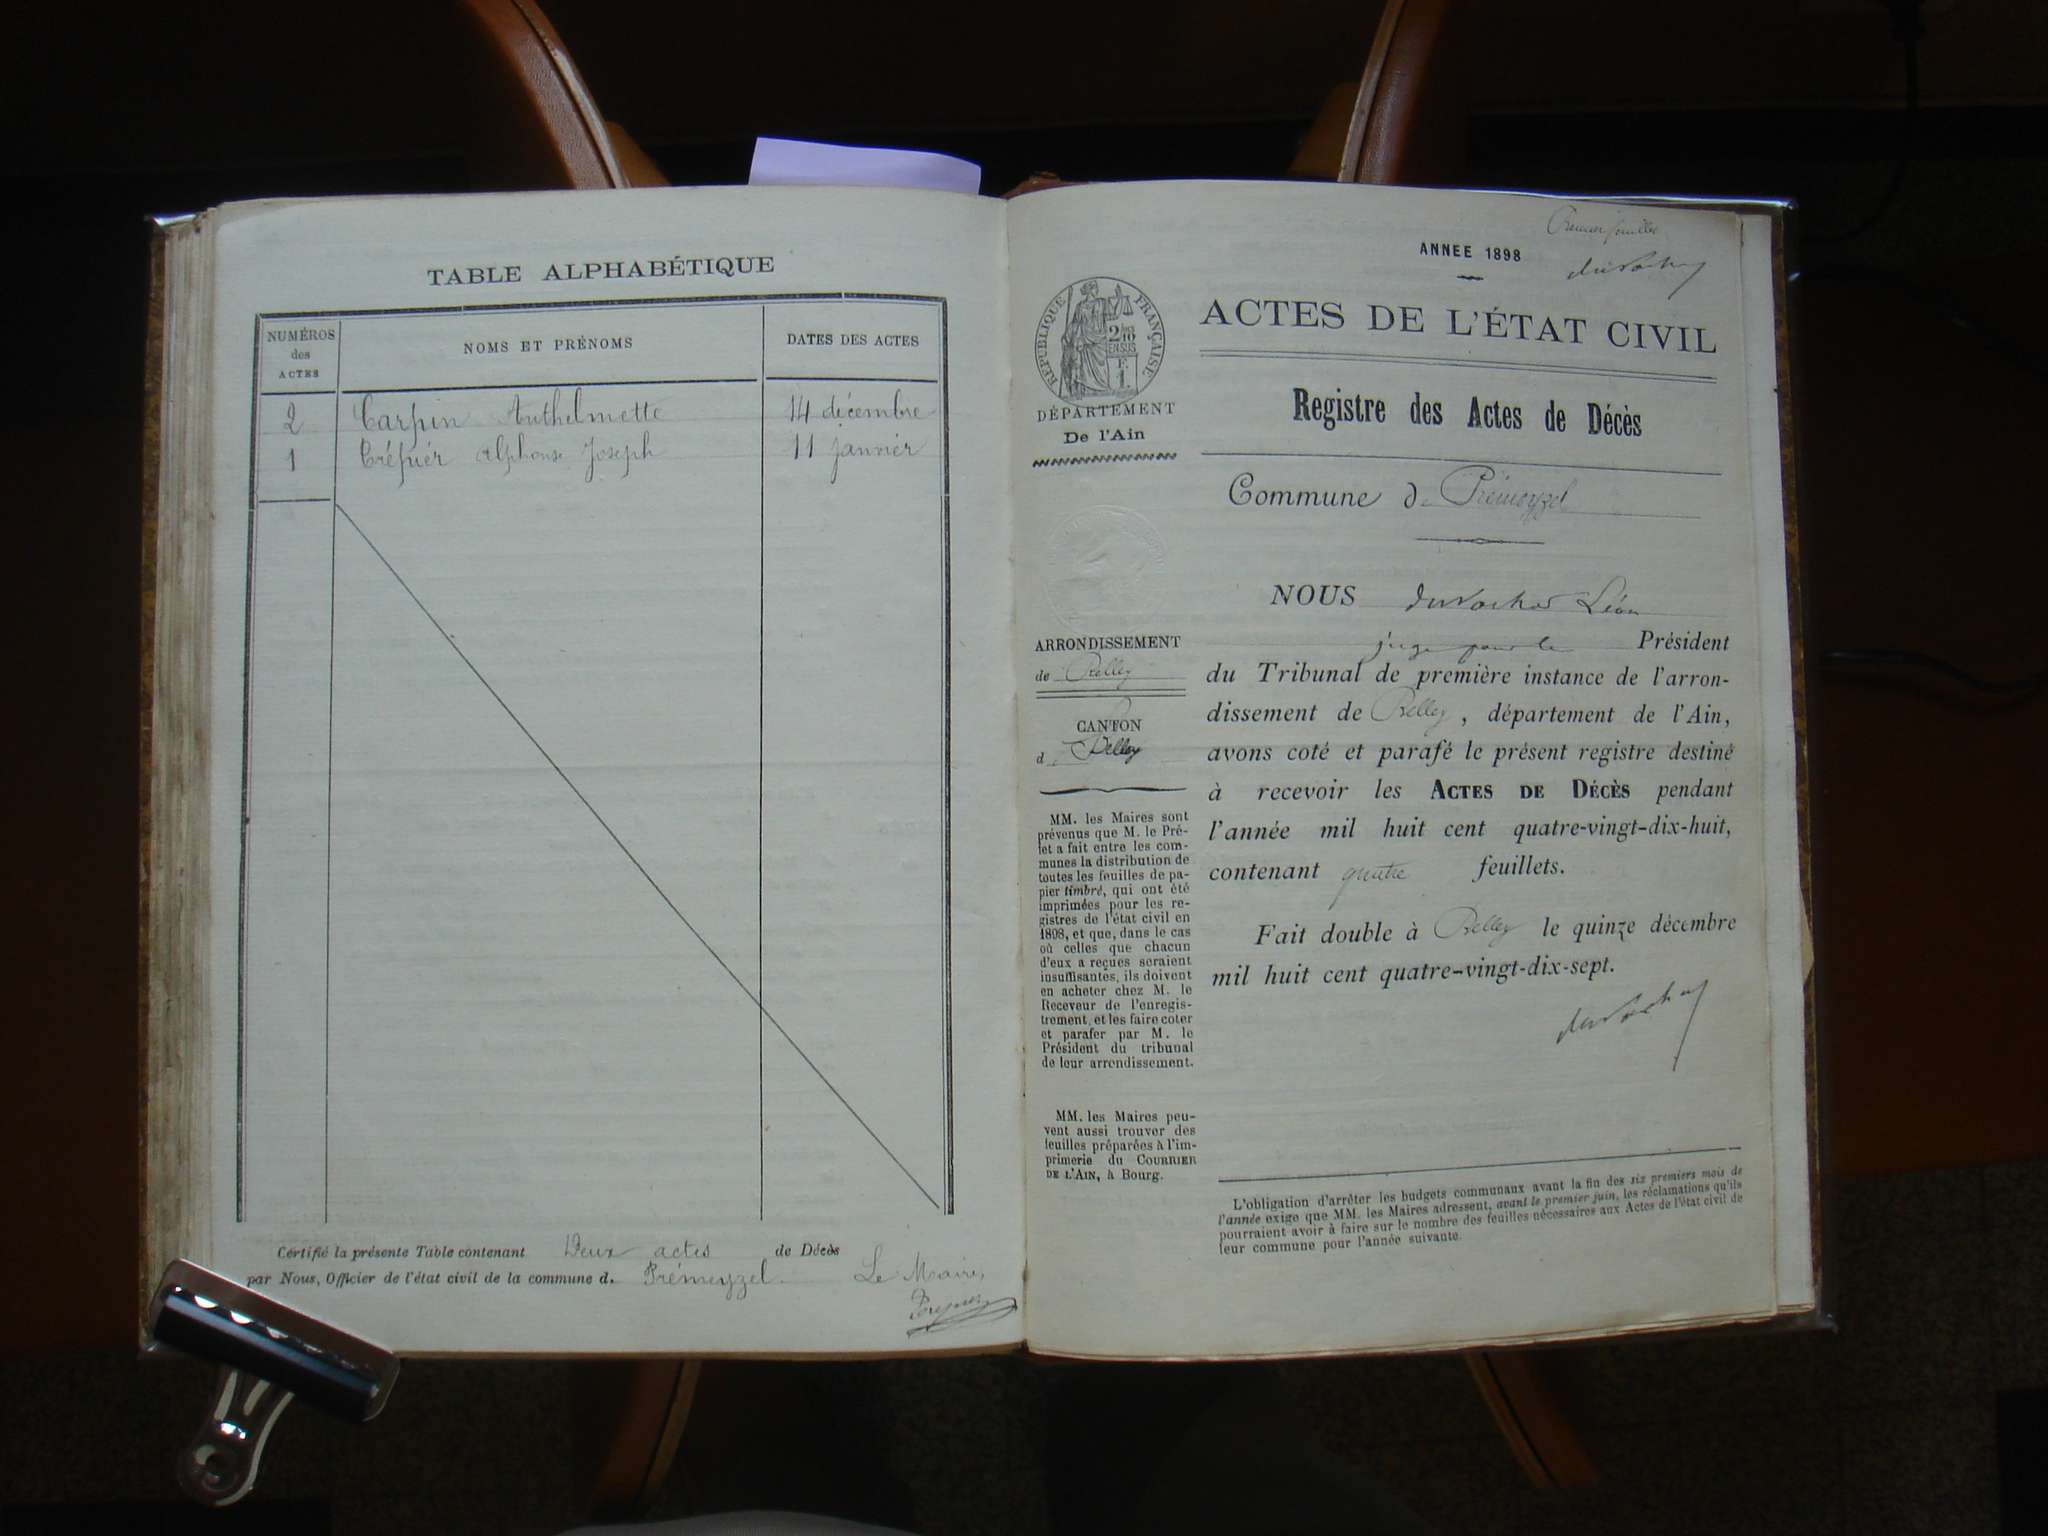 TABLE ALPHABÉTIQUE
NUMÉROS
des
ACTES
NOMS ET PRÉNOMS
DATES DES ACTES
2 Carpin Anthelmette 14 décembre
1 Crépier Alphonse Joseph 11 janvier
Certifié la présente Table contenant Deux actes de Décès
par Nous, Officier de l'état civil de la commune d. Prémeyzel. Le Maire,
Premier feuillet
ANNEE 1898
ACTES DE L'ÉTAT CIVIL
RÉPUBLIQUE FRANÇAISE.
2/10
EN SUS
F.
1.
DÉPARTEMENT
De l'Ain
Registre des Actes de Décès
Commune de Prémeyzel
NOUS Léon
juge pour le Président
du Tribunal de première instance de l'arron-
dissement de Belley, département de l'Ain,
avons coté et parafé le présent registre destiné
à recevoir les ACTES DE DÉCÈS pendant
l'année mil huit cent quatre-vingt-dix-huit,
contenant quatre feuillets.
Fait double à Belley le quinze décembre
mil huit cent quatre-vingt-dix-sept.
ARRONDISSEMENT
de Belley
CANTON
d Belley
MM. les Maires sont
prévenus que M. le Pré-
fet a fait entre les com-
munes la distribution de
toutes les feuilles de pa-
pier timbré, qui ont été
imprimées pour les re-
gistres de l'état civil en
1898, et que, dans le cas
où celles que chacun
d'eux a reçues seraient
insuffisantes, ils doivent
en acheter chez M. le
Receveur de l'enregis-
trement, et les faire coter
et parafer par M. le
Président du tribunal
de leur arrondissement.
MM. les Maires peu-
vent aussi trouver des
feuilles préparées à l'im-
primerie du COURRIER
DE L'AIN, à Bourg.
L'obligation d'arrêter les budgets communaux avant la fin des six premiers mois de
l'année exige que MM. les Maires adressent, avant le premier juin, les réclamations qu'ils
pourraient avoir à faire sur le nombre des feuilles nécessaires aux Actes de l'état civil de
leur commune pour l'année suivante.